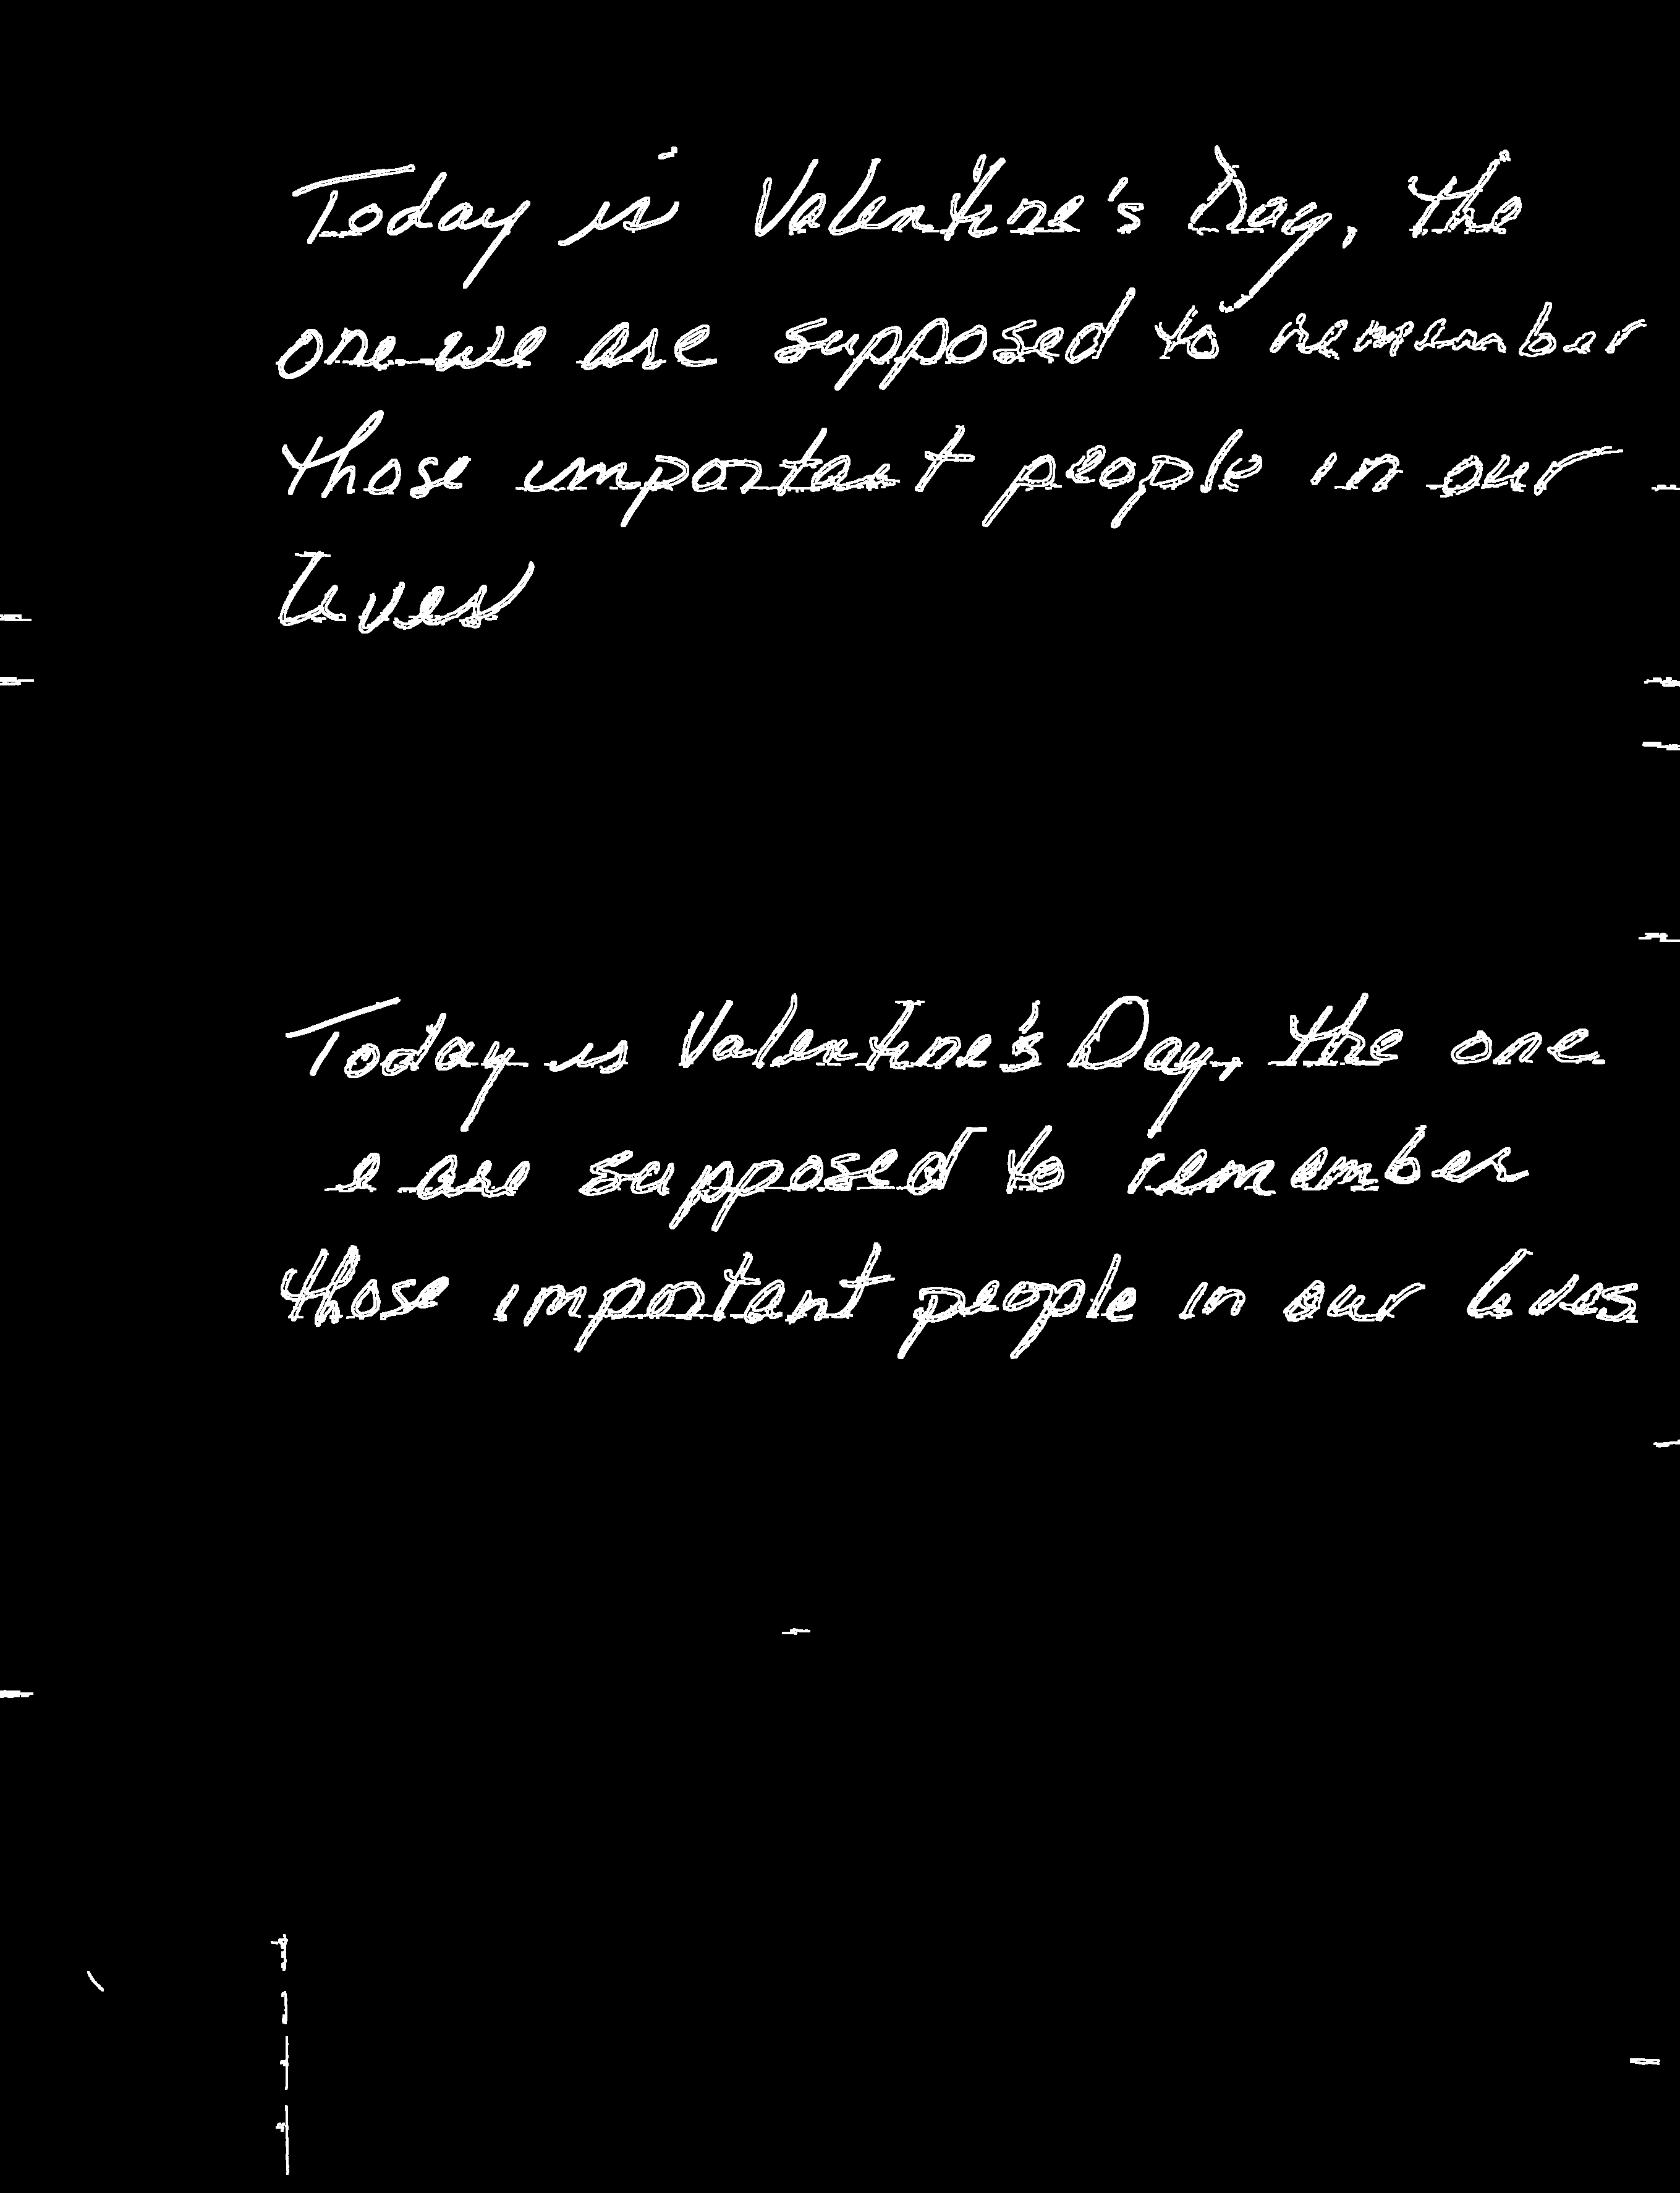 Today is Valentine's Day, the
one we are supposed to remember
those important people in our
lives
Today is Valentine's Day, the one
e are supposed to remember
those important people in our lives